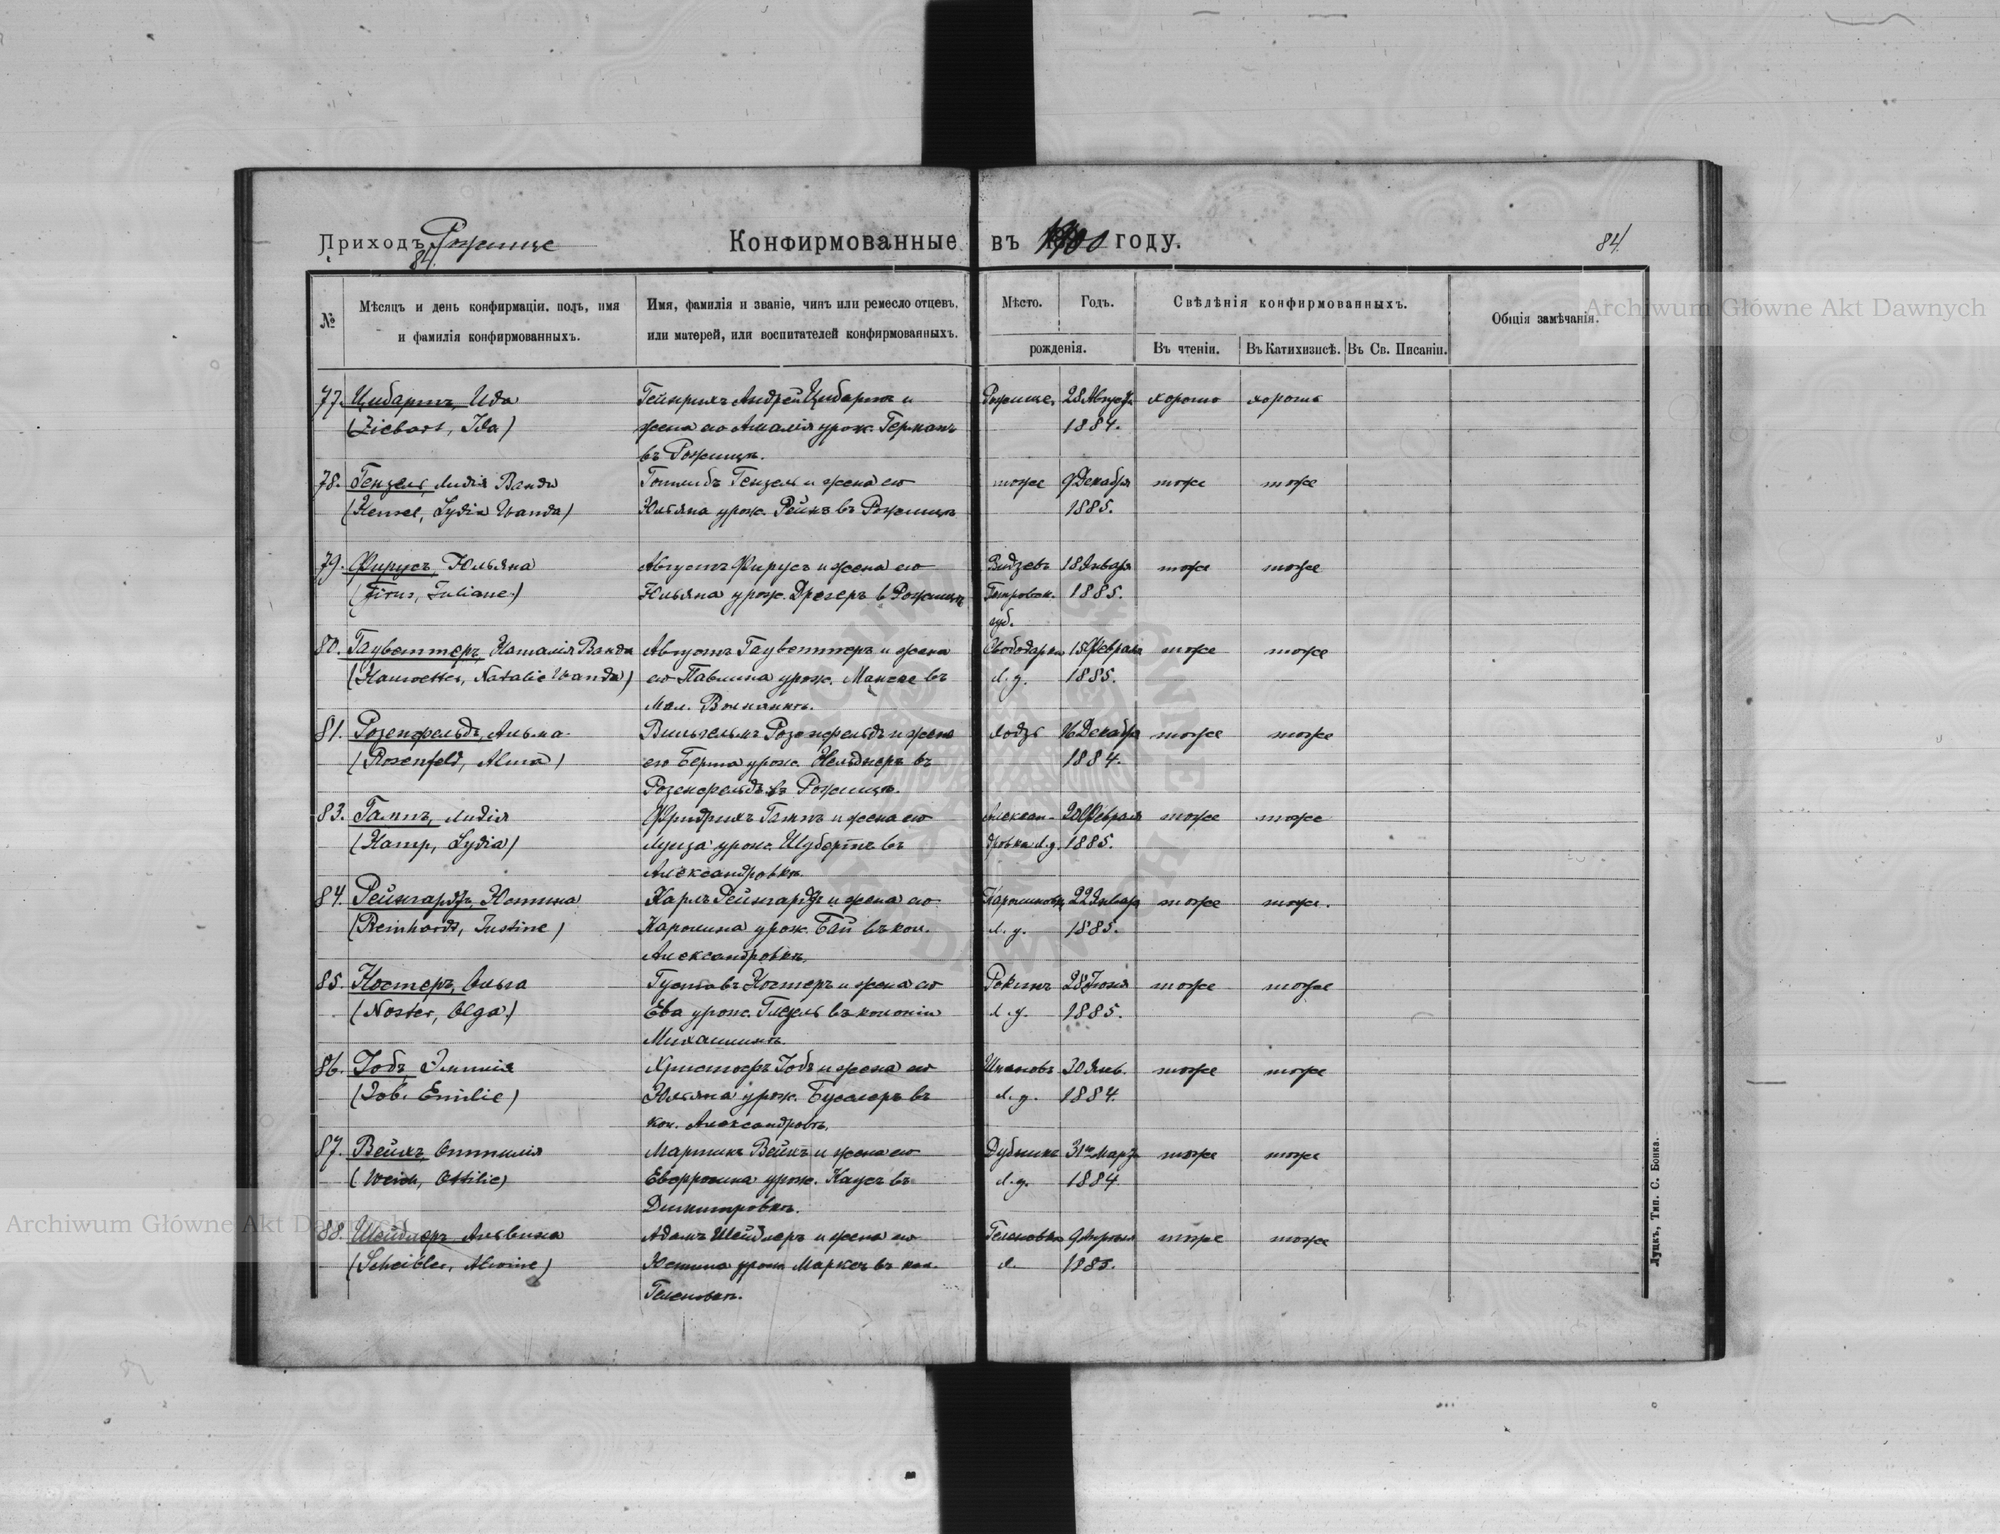 Приходъ Рожище
84.
Конфирмованные въ 1900 году.
84.
№
Мѣсяцъ и день конфирмаціи, полъ, имя
и фамилія конфирмованныхъ.
Имя, фамилія и званіе, чинъ или ремесло отцевъ,
или матерей, или воспитателей конфирмованныхъ.
Мѣсто.
Годъ.
рожденія.
Свѣдѣнія конфирмованныхъ.
Въ чтеніи.
Въ Катихизисѣ.
Въ Св. Писаніи.
Общія замѣчанія.
77. Цибартъ, Ида
Гейнрихъ Андрей Цибартъ и
Рожище, 28 Августа хорошо хорошо
(Ziebart, Ida)
жена его Амалія урож. Германъ
1884.
въ Рожищѣ.
78. Гензель, Лидія Ванда
Готлибъ Гензель и жена его
тоже 9 Декабря тоже тоже
(Hensel, Lydia Wanda)
Юльяна урож. Рейхъ въ Рожищѣ
1885.
79. Фирусъ, Юльяна
Августъ Фирусъ и жена его
Видзевъ 18 Января тоже тоже
(Firus, Juliane)
Юльяна урож. Дрегеръ в Рожищѣ
Петровск. 1885.
губ.
80. Гауветтеръ, Наталія Ванда
Августъ Гауветтеръ и жена
Свободарка 15 Февраля тоже тоже
(Hauwetter, Natalie Wanda)
его Павлина урож. Манске въ
Л. у. 1885.
Мал. Волнянкѣ.
81. Розенфельдъ, Альма
Вильгельмъ Розенфельдъ и жена
Лодзь 16 Декабря тоже тоже
(Rosenfeld, Alma)
его Берта урож. Нельднеръ въ
1884.
Розенфельдъ въ Рожищѣ.
83. Гампъ, Лидія
Фридрихъ Гампъ и жена его
Алексан- 20 Февраля тоже тоже
(Hamp, Lydia)
Луиза урож. Шубертъ въ
дровка Л. у. 1885.
Александровкѣ.
84. Рейнгардтъ, Юстина
Карлъ Рейнгардтъ и жена его
22 Января тоже тоже.
(Reinhardt, Justine)
Каролина урож. Бай въ кол.
Л. у. 1885.
Александровкѣ.
85. Ностеръ, Ольга
Густавъ Ностеръ и жена его
Рокинъ 28 Іюня тоже тоже
(Noster, Olga)
Ева урож. въ колоніи
Л. у. 1885.
Михалинѣ.
86. Іобъ, Эмилія
Христофъ Іобъ и жена его
30 Янв. тоже тоже
(Job, Emilie)
Юльяна урож. Бусслеръ въ
Л. у. 1884.
кол. Александровъ.
87. Вейхъ, Оттилія
Мартинъ Вейхъ и жена его
Дубникъ 31го Марта тоже тоже
(Weich, Ottilie)
Евфросина урож. въ
Л. у. 1884
Димитровкѣ.
88. Шейблеръ Альвина
Адамъ Шейблеръ и жена его
Геленовка 9 Апрѣля тоже тоже
(Scheibler, Alwine)
Юстина урож. Марксъ въ кол.
Л. 1885.
Геленовкѣ.
Луцкъ, Тип. С. Бонка.
Archiwum Główne Akt Dawnych
Archiwum Główne Akt Dawnych